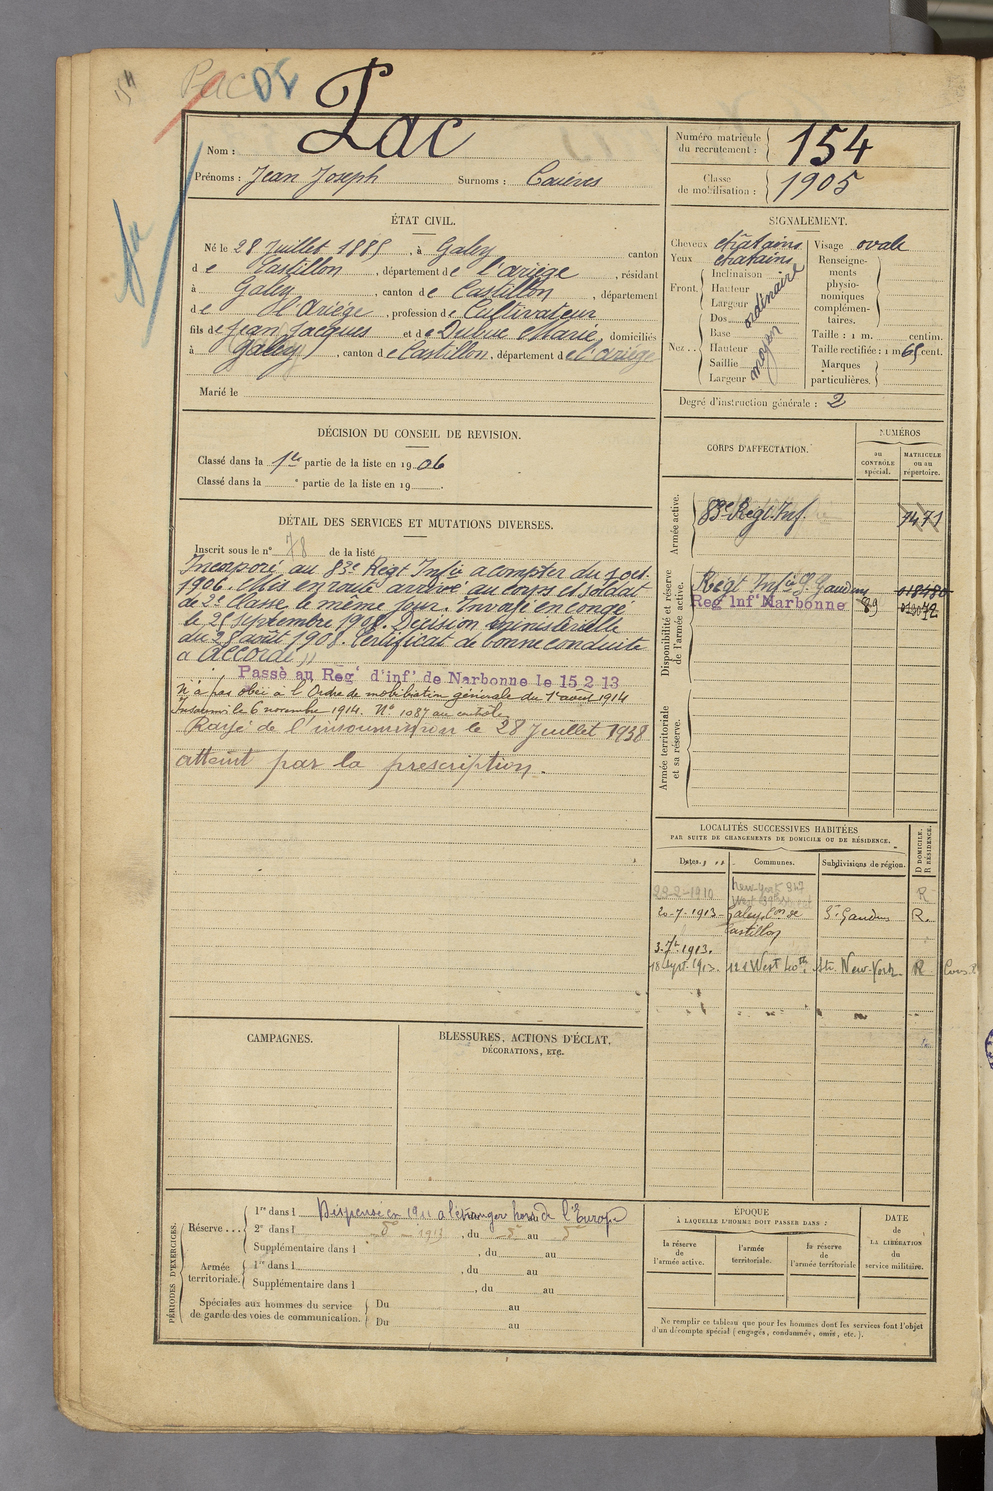 154
Pac
Nom : Pac
Numéro matricule du recrutement : 154
Prénoms : Jean Joseph Surnoms :
Classe de mobilisation : 1905
ÉTAT CIVIL.
Né le 28 Juillet 1885, à Galey canton
de Castillon, département de l'ariège, résidant
à Galey, canton de Castillon, département
de l'Ariége, profession de Cultivateur
fils de Jean Jacques et de Marie, domiciliés
à Galey, canton de Castillon, département de l'ariége
Marié le
SIGNALEMENT.
Cheveux chatains Visage ovale
Yeux chatains Renseignements physionomiques complémentaires.
Front. Inclinaison
Hauteur ordinaire
Largeur
Nez.. Dos
Base moyen
Hauteur
Saillie
Largeur
Taille : 1 m. centim.
Taille rectifiée : 1 m 65 cent.
Marques particulières.
Degré d'instruction générale : 2
DÉCISION DU CONSEIL DE REVISION.
Classé dans la 1re partie de la liste en 1906
Classé dans la e partie de la liste en 19 .
CORPS D'AFFECTATION.
NUMÉROS
au CONTRÔLE spécial.
MATRICULE ou au répertoire.
Armée active.
83e Regt. Inf. 7471
Disponibilité et réserve de l'armée active.
Régt Infie St Gaudens
Reg Infie Narbonne 89
Armée territoriale et sa réserve.
DÉTAIL DES SERVICES ET MUTATIONS DIVERSES.
Inscrit sous le n° 78 de la liste
Incorporé au 83e Régt Infie a compter du oct.
1906. Mis en route arrivé au corps et soldat
de 2e classe le même jour. Envoyé en congé
le 25 Septembre 1908. Décision ministérielle
du 28 août 1908. Certificat de bonne conduite
a accordé "
Passé au Regt d'inft de Narbonne le 15-2-13
N'a pas obéi à l'Ordre de mobilisation générale du 1er août 1914
Insoumis le 6 novembre 1914. N° 1087 au contrôle
Rayé de l'insoumission le 28 Juillet 1938
atteint par la prescription.
LOCALITÉS SUCCESSIVES HABITÉES
PAR SUITE DE CHANGEMENTS DE DOMICILE OU DE RÉSIDENCE.
Dates. Communes. Subdivisions de région. D DOMICILE. R RÉSIDENCE.
22-2-1910 New-York R
20-7-1913 Galey, Con de Castillon St Gaudens R.
1913.
18 Sept. 1913. 121 West 40th Str. New-York R
CAMPAGNES.
BLESSURES, ACTIONS D'ÉCLAT,
DÉCORATIONS, ETC.
PÉRIODES D'EXERCICES.
Réserve... 1re dans l Dispensé en 1911 a l'étranger hors de l'Europe
2e dans l 1913, du au
Supplémentaire dans l , du au
Armée territoriale. 1re dans l , du au
Supplémentaire dans l , du au
Spéciales aux hommes du service de garde des voies de communication. Du au
Du au
ÉPOQUE
À LAQUELLE L'HOMME DOIT PASSER DANS :
la réserve de l'armée active.
l'armée territoriale.
la réserve de l'armée territoriale
DATE de LA LIBÉRATION du service militaire.
Ne remplir ce tableau que pour les hommes dont les services font l'objet
d'un décompte spécial (engagés, condamnés, omis, etc.).